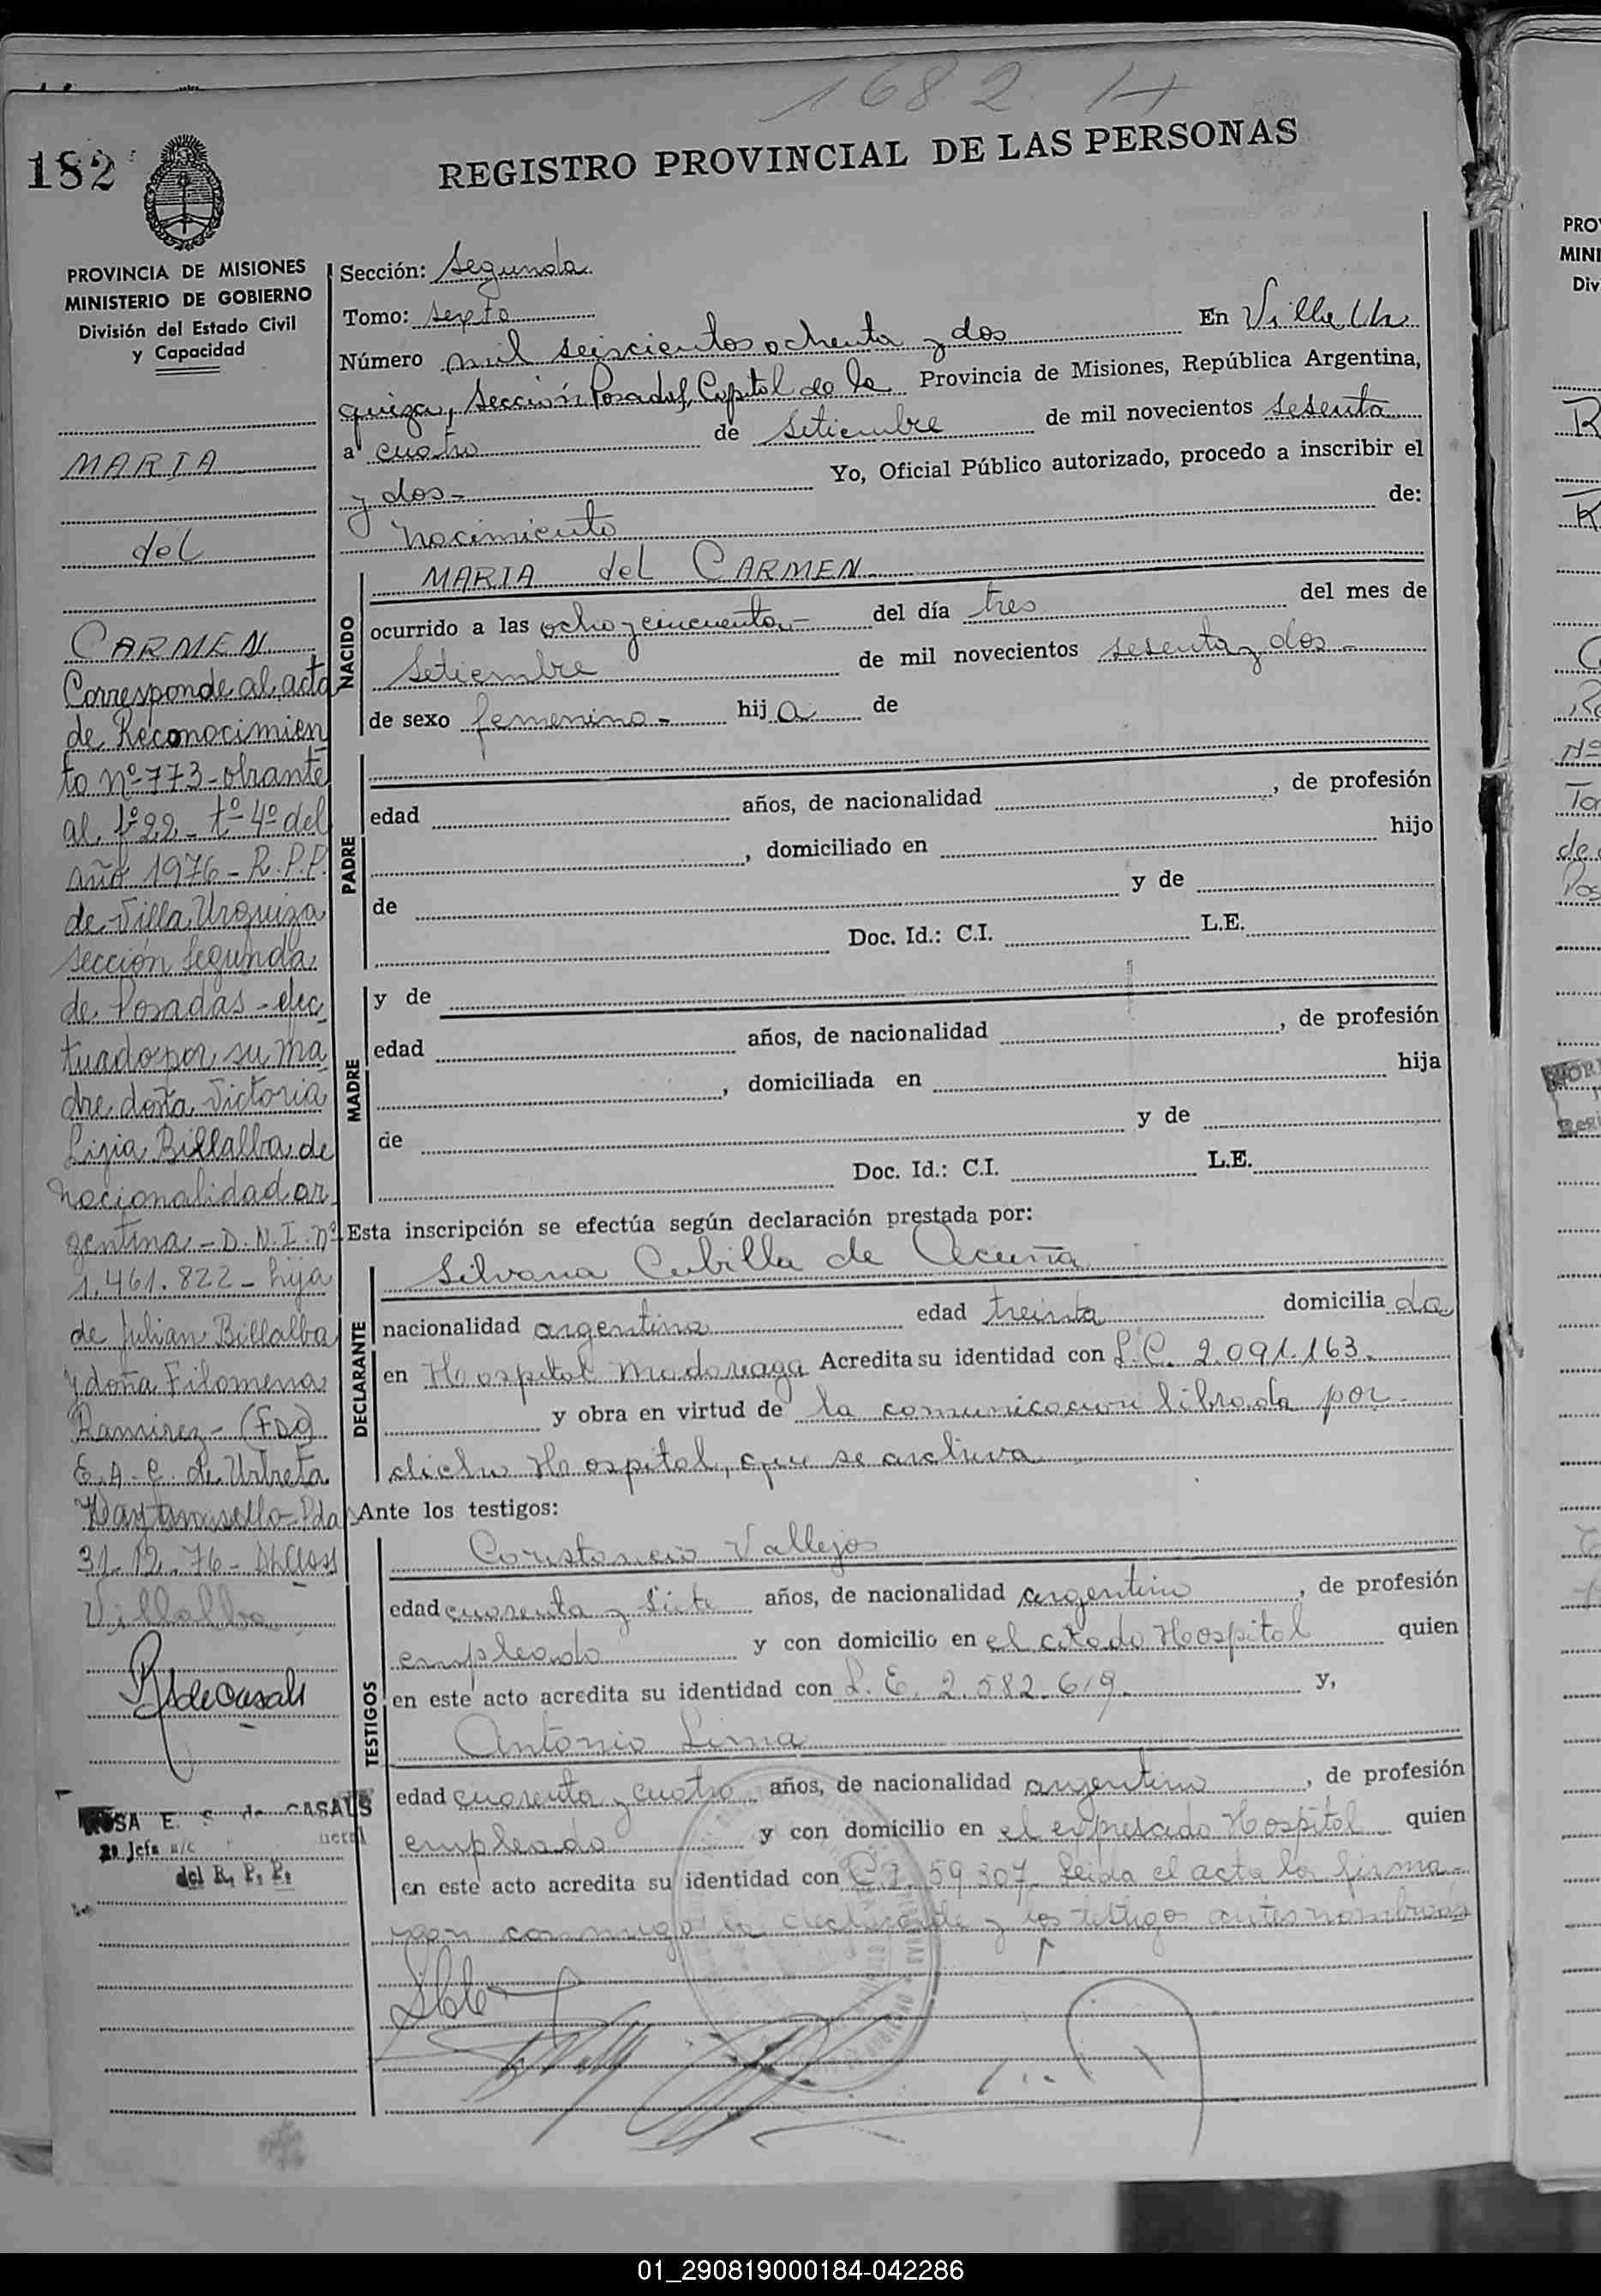 1682 H
182
REGISTRO PROVINCIAL DE LAS PERSONAS
PROVINCIA DE MISIONES
MINISTERIO DE GOBIERNO
División del Estado Civil
y Capacidad
MARIA
del
CARMEN
Corresponde al acta
de Reconocimien
to nº 773-obrante
al fº 22 - tº 4º del
año 1976 - R.P.P.
de Villa Urquiza
sección segunda
de Posadas - efec
tuado por su ma
dre doña Victoria
Ligia Billalba de
nacionalidad ar
gentina - D.N.I. nº
1.461.822 - hija
de Julian Billalba
y doña Filomena
Ramirez - (Fdo)
E.A.C. de Urreta
Pda
31-12-76 -
Villalba
RSdeCasals
ROSA E. S. de CASALS
2º Jefa
del R. P. P.
Sección: Segunda
Tomo: sexto
Número mil seiscientos ochenta y dos En Villa Ur
quiza, sección Posadas, Capital de la Provincia de Misiones, República Argentina,
a cuatro de setiembre de mil novecientos sesenta
y dos- Yo, Oficial Público autorizado, procedo a inscribir el
nacimiento de:
NACIDO
MARIA del CARMEN
ocurrido a las ocho y cincuenta- del día tres del mes de
setiembre de mil novecientos sesenta y dos-
de sexo femenino- hija de
PADRE
edad años, de nacionalidad , de profesión
, domiciliado en hijo
de y de
Doc. Id.: C.I. L.E.
MADRE
y de
edad años, de nacionalidad , de profesión
, domiciliada en hija
de y de
Doc. Id.: C.I. L.E.
Esta inscripción se efectúa según declaración prestada por:
DECLARANTE
Silvana Cubilla de Acuña
nacionalidad argentina edad treinta domiciliada
en Hospital Madariaga Acredita su identidad con L.C. 2.091.163.
y obra en virtud de la comunicacion librada por
dicho Hospital, que se archiva
Ante los testigos:
TESTIGOS
Constancio Vallejos
edad cuarenta y siete años, de nacionalidad argentino, de profesión
empleado y con domicilio en el citado Hospital quien
en este acto acredita su identidad con L.E. 2.582.619. y,
Antonio Lima
edad cuarenta y cuatro años, de nacionalidad argentino, de profesión
empleado y con domicilio en el expresado Hospital quien
en este acto acredita su identidad con C.I. 59307. Leida el acta la firma-
ron conmigo la declarante y los testigos antes nombrados
PRO
MINI
Div
01_290819000184-042286